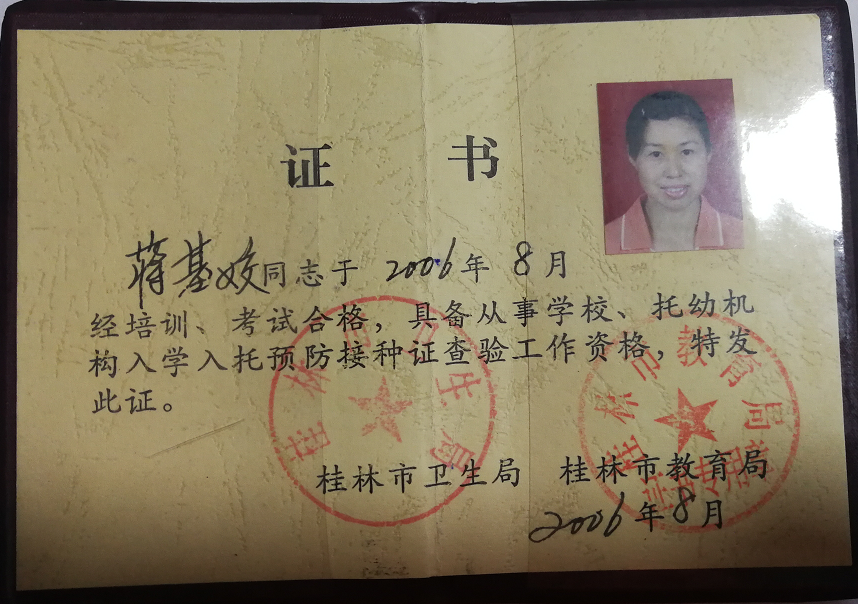 证 书
蒋基姣同志于 2006年 8月
经培训、考试合格，具备从事学校、托幼机
构入学入托预防接种证查验工作资格，特发
此证。
桂林市卫生局 桂林市教育局
2006年8月
桂林市卫生局
桂林市教育局